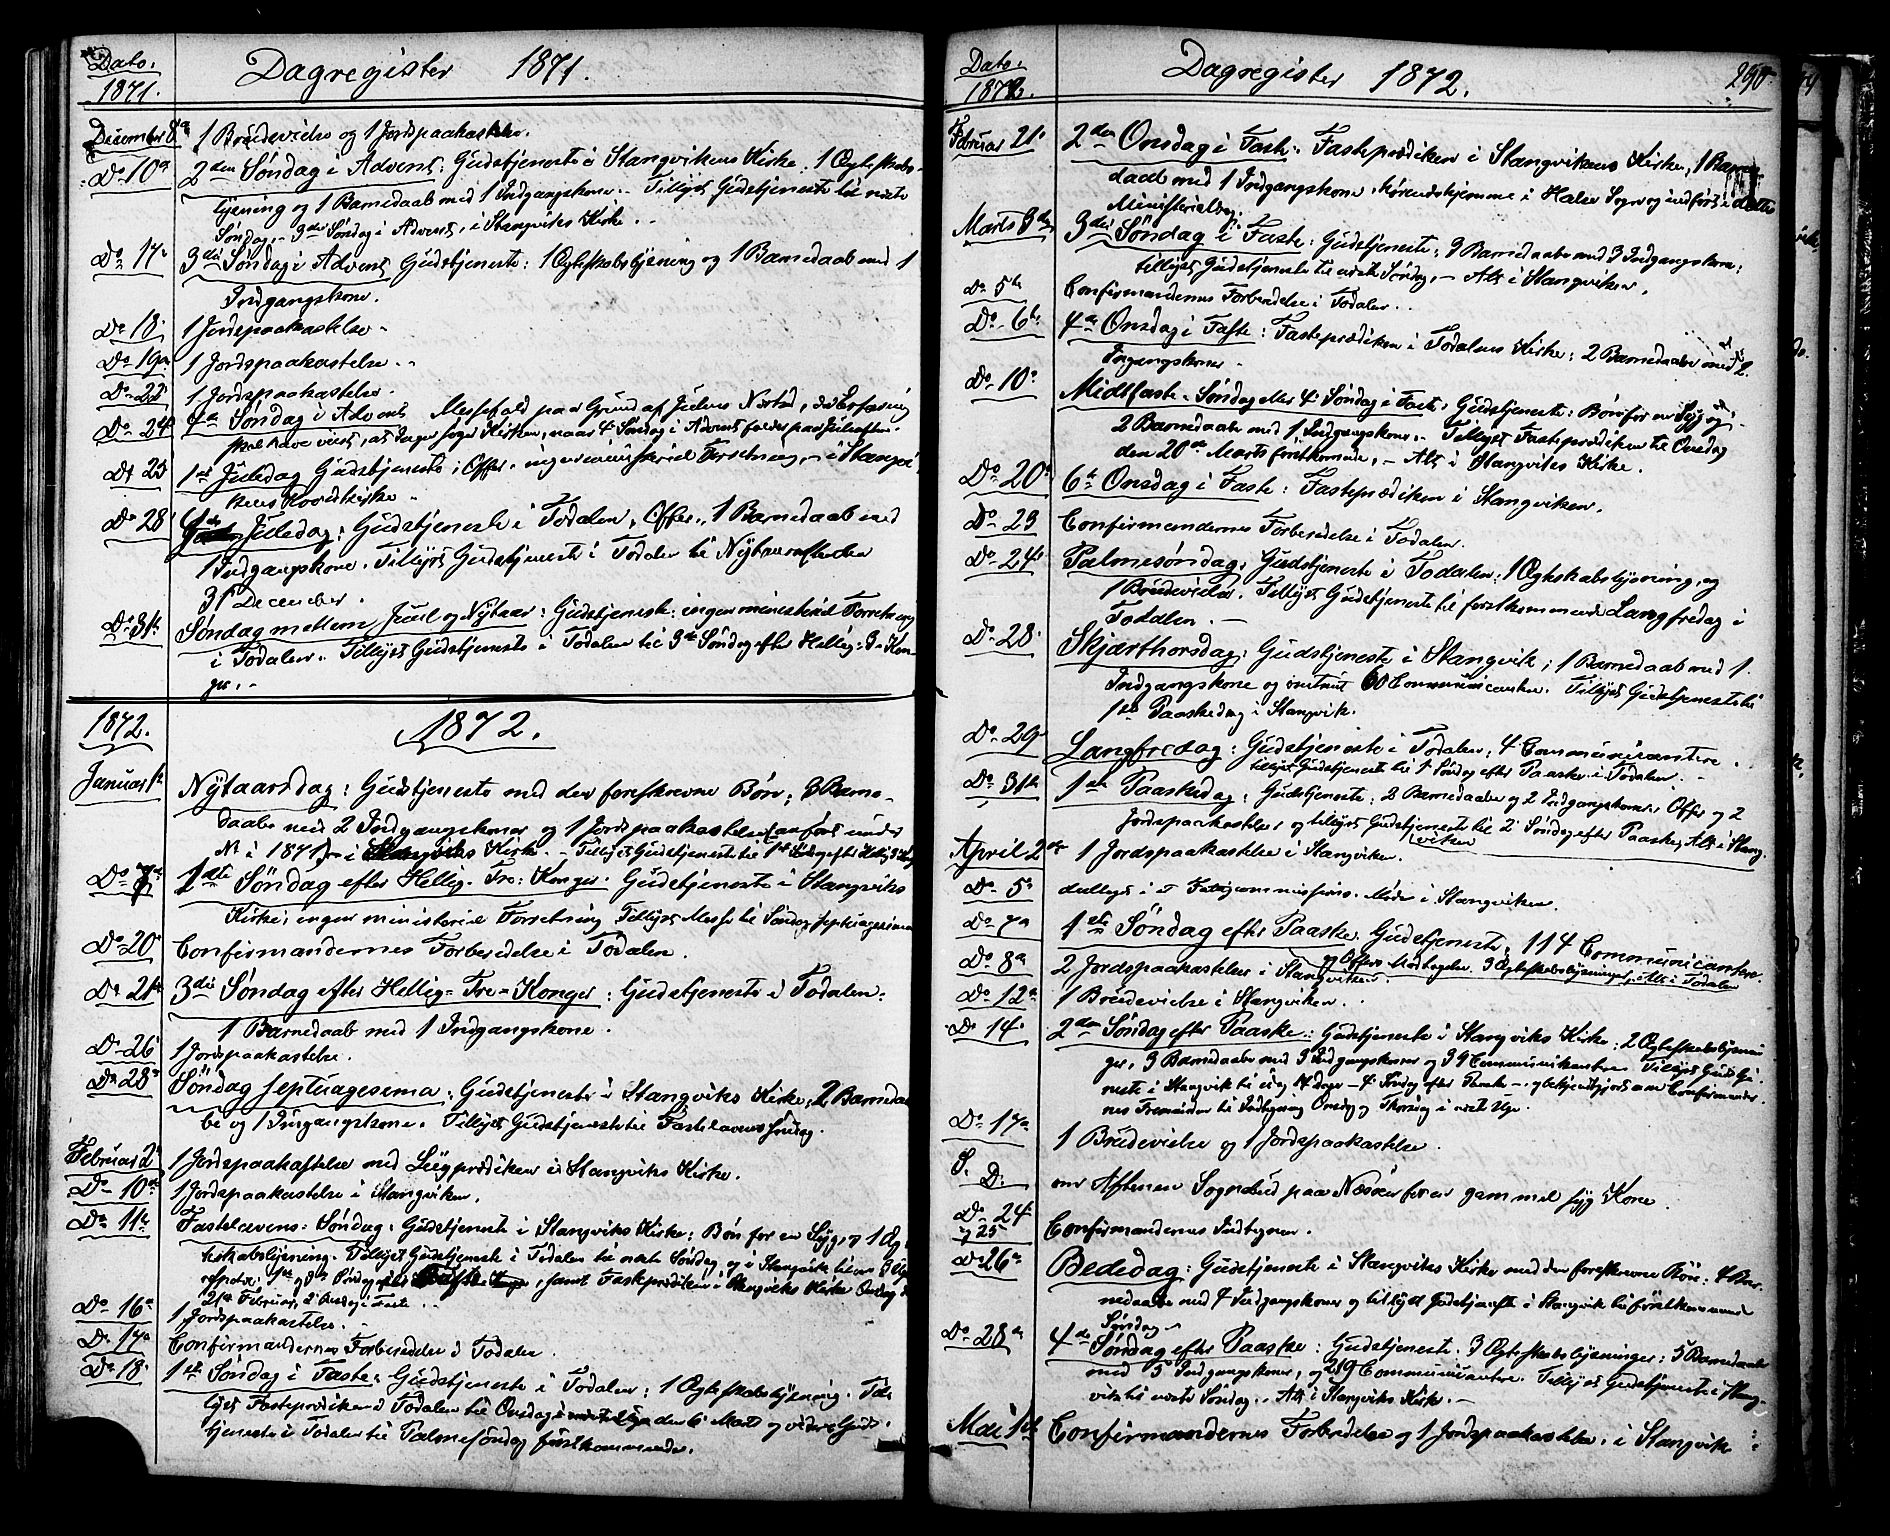 Dato. Dagregister 1871.
1871.
December 8de 1 Brudevielse og 1 Jordspaakastelse.
Do 10de 2den Søndag i Advent: Gudstjeneste i Stangvikens Kirke. 1 Ægteskabs-
lysning og 1 Barnedaab med 1 Indgangskone. Tillyst Gudstjeneste til næste
Søndag, 3die Søndag i Advent, i Stangviks Kirke.
Do 17 3die Søndag i Advent Gudstjeneste: 1 Ægteskabslysning og 1 Barnedaab med 1
Indgangskone.
Do 18. 1 Jordspaakastelse.
Do 19 1 Jordspaakastelse.
Do 1 Jordspaakastelse.
Do 24 4de Søndag i Advent Messefald paa Grund af Julens da Erfaring
skal have viist, at Ingen søger Kirken, naar 4 Søndag i Advent falder paa Juleaften.
Do 25 1ste Juledag Gudstjeneste; Offer, ingen ministeriel Forretning, i Stangvi-
kens Hovedkirke.
Do 28 4de Juledag: Gudstjeneste i Todalen, Offer, 1 Barnedaab med
1 Indgangskone. Tillyst Gudstjeneste i Todalen til Nytaarsaften den
31 December.
Do 31te Søndag mellem Juul og Nytaar: Gudstjeneste: ingen ministeriel Forretning
i Todalen. Tillyst Gudstjeneste i Todalen til 3die Søndag efter Hellig-3-Kon-
ger.
1872. 1872.
Januar 1ste Nytaarsdag: Gudstjeneste med den foreskrevne Bøn; 3 Barne-
daabe med 2 Indgangskoner og 1 Jordspaakastelse (anført under
N i 1871) i Stangviks Kirke. Tillyst Gudstjeneste til 1st efter Hellig 3 Kong
Do 7de 1ste Søndag efter Hellig-Tre-Konger. Gudstjeneste i Stangviks
Kirke; ingen ministeriel Forretning Tillyst Messe til Søndag septuagesima
Do 20 Confirmandernes Forberedelse i Todalen.
Do 21de 3die Søndag efter Hellig-Tre-Konger: Gudstjeneste i Todalen:
1 Barnedaab med 1 Indgangskone.
Do 26 1 Jordspaakastelse.
Do 28 Søndag septuagesima: Gudstjeneste i Stangviks Kirke, 2 Barnedaa-
be og 1 Indgangskone. Tillyst Gudstjeneste til Fastelavens Søndag.
Februar 2 1 Jordspaakastelse med Liigprædiken i Stangviks Kirke.
Do 10de 1 Jordspaakastelse i Stangviken.
Do 11te Fastelavens-Søndag: Gudstjeneste i Stangviks Kirke: Bøn for en Syg, og 1 Æg-
teskabslysning. Tillyst Gudstjeneste i Todalen til næste Søndag, og i Stangvik
samt Fasteprædiken i Stangviks Kirke Onsdag d.
21de Februar, 2 Onsdag i Faste.
Do 16 1 Jordspaakastelse.
Do 17 Confirmandernes Forberedelse i Todalen.
Do 18 1ste Søndag i Faste: Gudstjeneste i Todalen; 1 Ægteskabslysning. Til-
lyst Fasteprædiken i Todalen til Onsdag den 6 Marts og videre Guds-
tjeneste i Todalen til Palmesøndag førstkommende.
Dato. Dagregister 1872. 250.
1872.
Februar 21. 2den Onsdag i Faste: Fasteprædiken i Stangvikens Kirke, 1 Barne-
daab med 1 Indgangskone, hørende hjemme i Halse Sogn og indført i dette
Ministerialbog.
Marts 3die 3die Søndag i Faste: Gudstjeneste; 3 Barnedaabe med 3 Indgangskoner;
tillyst Gudstjeneste til næste Søndag, Alt i Stangviken.
Do 5te Confirmandernes Forberedelse i Todalen.
Do 6te 4de Onsdag i Faste: Fasteprædiken i Todalens Kirke; 2 Barnedaabe med 2
Ingangskoner.
Do 10 Midtfaste-Søndag eller 4 Søndag i Faste, Gudstjeneste: Bøn for en Syg og
2 Barnedaabe med 1 Indgangskone. Tillyst Fasteprædiken til Onsdag
den 20de Marts førstkommende, Alt i Stangviks Kirke.
Do 20 6te Onsdag i Faste: Fasteprædiken i Stangviken.
Do 23 Confirmandernes Forberedelse i Todalen.
Do 24 Palmesøndag: Gudstjeneste i Todalen: 1 Ægteskabslysning, og
1 Brudevielse. Tillyst Gudstjeneste til førstkommende Langfredag i
Todalen.
Do 28. Skjærthorsdag: Gudstjeneste i Stangvik; 1 Barnedaab med 1
Indgangskone og omtrent 60 Communicanter. Tillyst Gudstjeneste til
1ste Paaskedag i Stangvik.
Do 29 Langfredag: Gudstjeneste i Todalen, 4 Communicantere.
tillyst Gudstjeneste til 1 Søndag efter Paaske i Todalen.
Do 31te 1ste Paaskedag: Gudstjeneste: 2 Barnedaabe og 2 Indgangskoner, Offer og 2
Jordspaakastelser og tillyst Gudstjeneste til 2 Søndag efter Paaske, Alt i Stang-
viken
April 2den 1 Jordspaakastelse i Stangviken.
Do 5 commissions-Møde i Stangviken.
Do 7de 1ste Søndag efter Paaske. Gudstjeneste, 114 Communicantere
og Offers Modtagelse. 3 Ægteskabslysninger, Alt i Todalen
Do 8de 2 Jordspaakastelser i Stangviken.
Do 12de 1 Brudevielse i Stangviken.
Do 14. 2den Søndag efter Paaske: Gudstjeneste i Stangviks Kirke; 2 Ægteskabslysnin-
ger, 3 Barnedaabe med 3 Indgangskoner og 39 Communicantere. Tillyst Gudstje-
neste i Stangvik til idag 14 dage - 4 Søndag efter Paaske - og bekjendtgjort om Confirmander-
nes Fremmøde til Indtegning Onsdag og Thorsdag i næste Uge.
Do 17 1 Brudevielse og 1 Jordspaakastelse.
S. D. om Aftenen Sognebud paa for en gammel syg Kone.
Do 24
og 25 Confirmandernes Indtegnen.
Do 26de Bededag: Gudstjeneste i Stangviks Kirke med den foreskrevne Bøn: 7 Bar-
nedaabe med 7 Indgangskoner og tillyst Gudstjeneste i Stangvik til førstkommende
Søndag
Do 28de 4de Søndag efter Paaske: Gudstjeneste: 3 Ægteskabslysninger; 5 Barnedaabe
med 5 Indgangskoner, og 29 Communicantere. Tillyst Gudstjeneste i Stang-
vik til næste Søndag. Alt i Stangviks Kirke.
Mai 1ste Confirmandernes Forberedelse og 1 Jordspaakastelse, i Stangvik